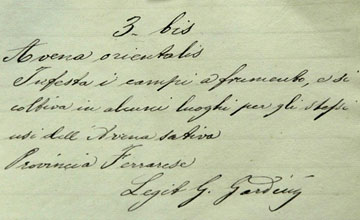 3. bis
Avena orientalis
Infesta i campi a frumento, e si
coltiva in alcuni luoghi per gli stessi
usi dell Avena sativa
Provincia Ferrarese
Legit G.